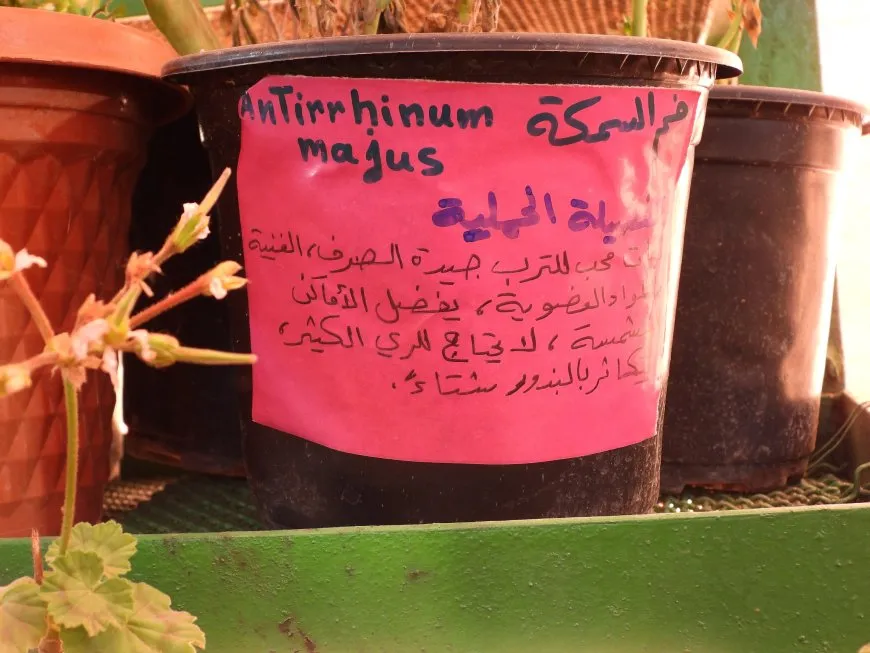 Antirrhinum
majus
فم السمكة
فصيلة الحملية
نبات محب للترب جيدة الصرف، الغنية
بالمواد العضوية، يفضل الأماكن
المشمسة، لا يحتاج للري الكثير،
يتكاثر بالبذور شتاءً.